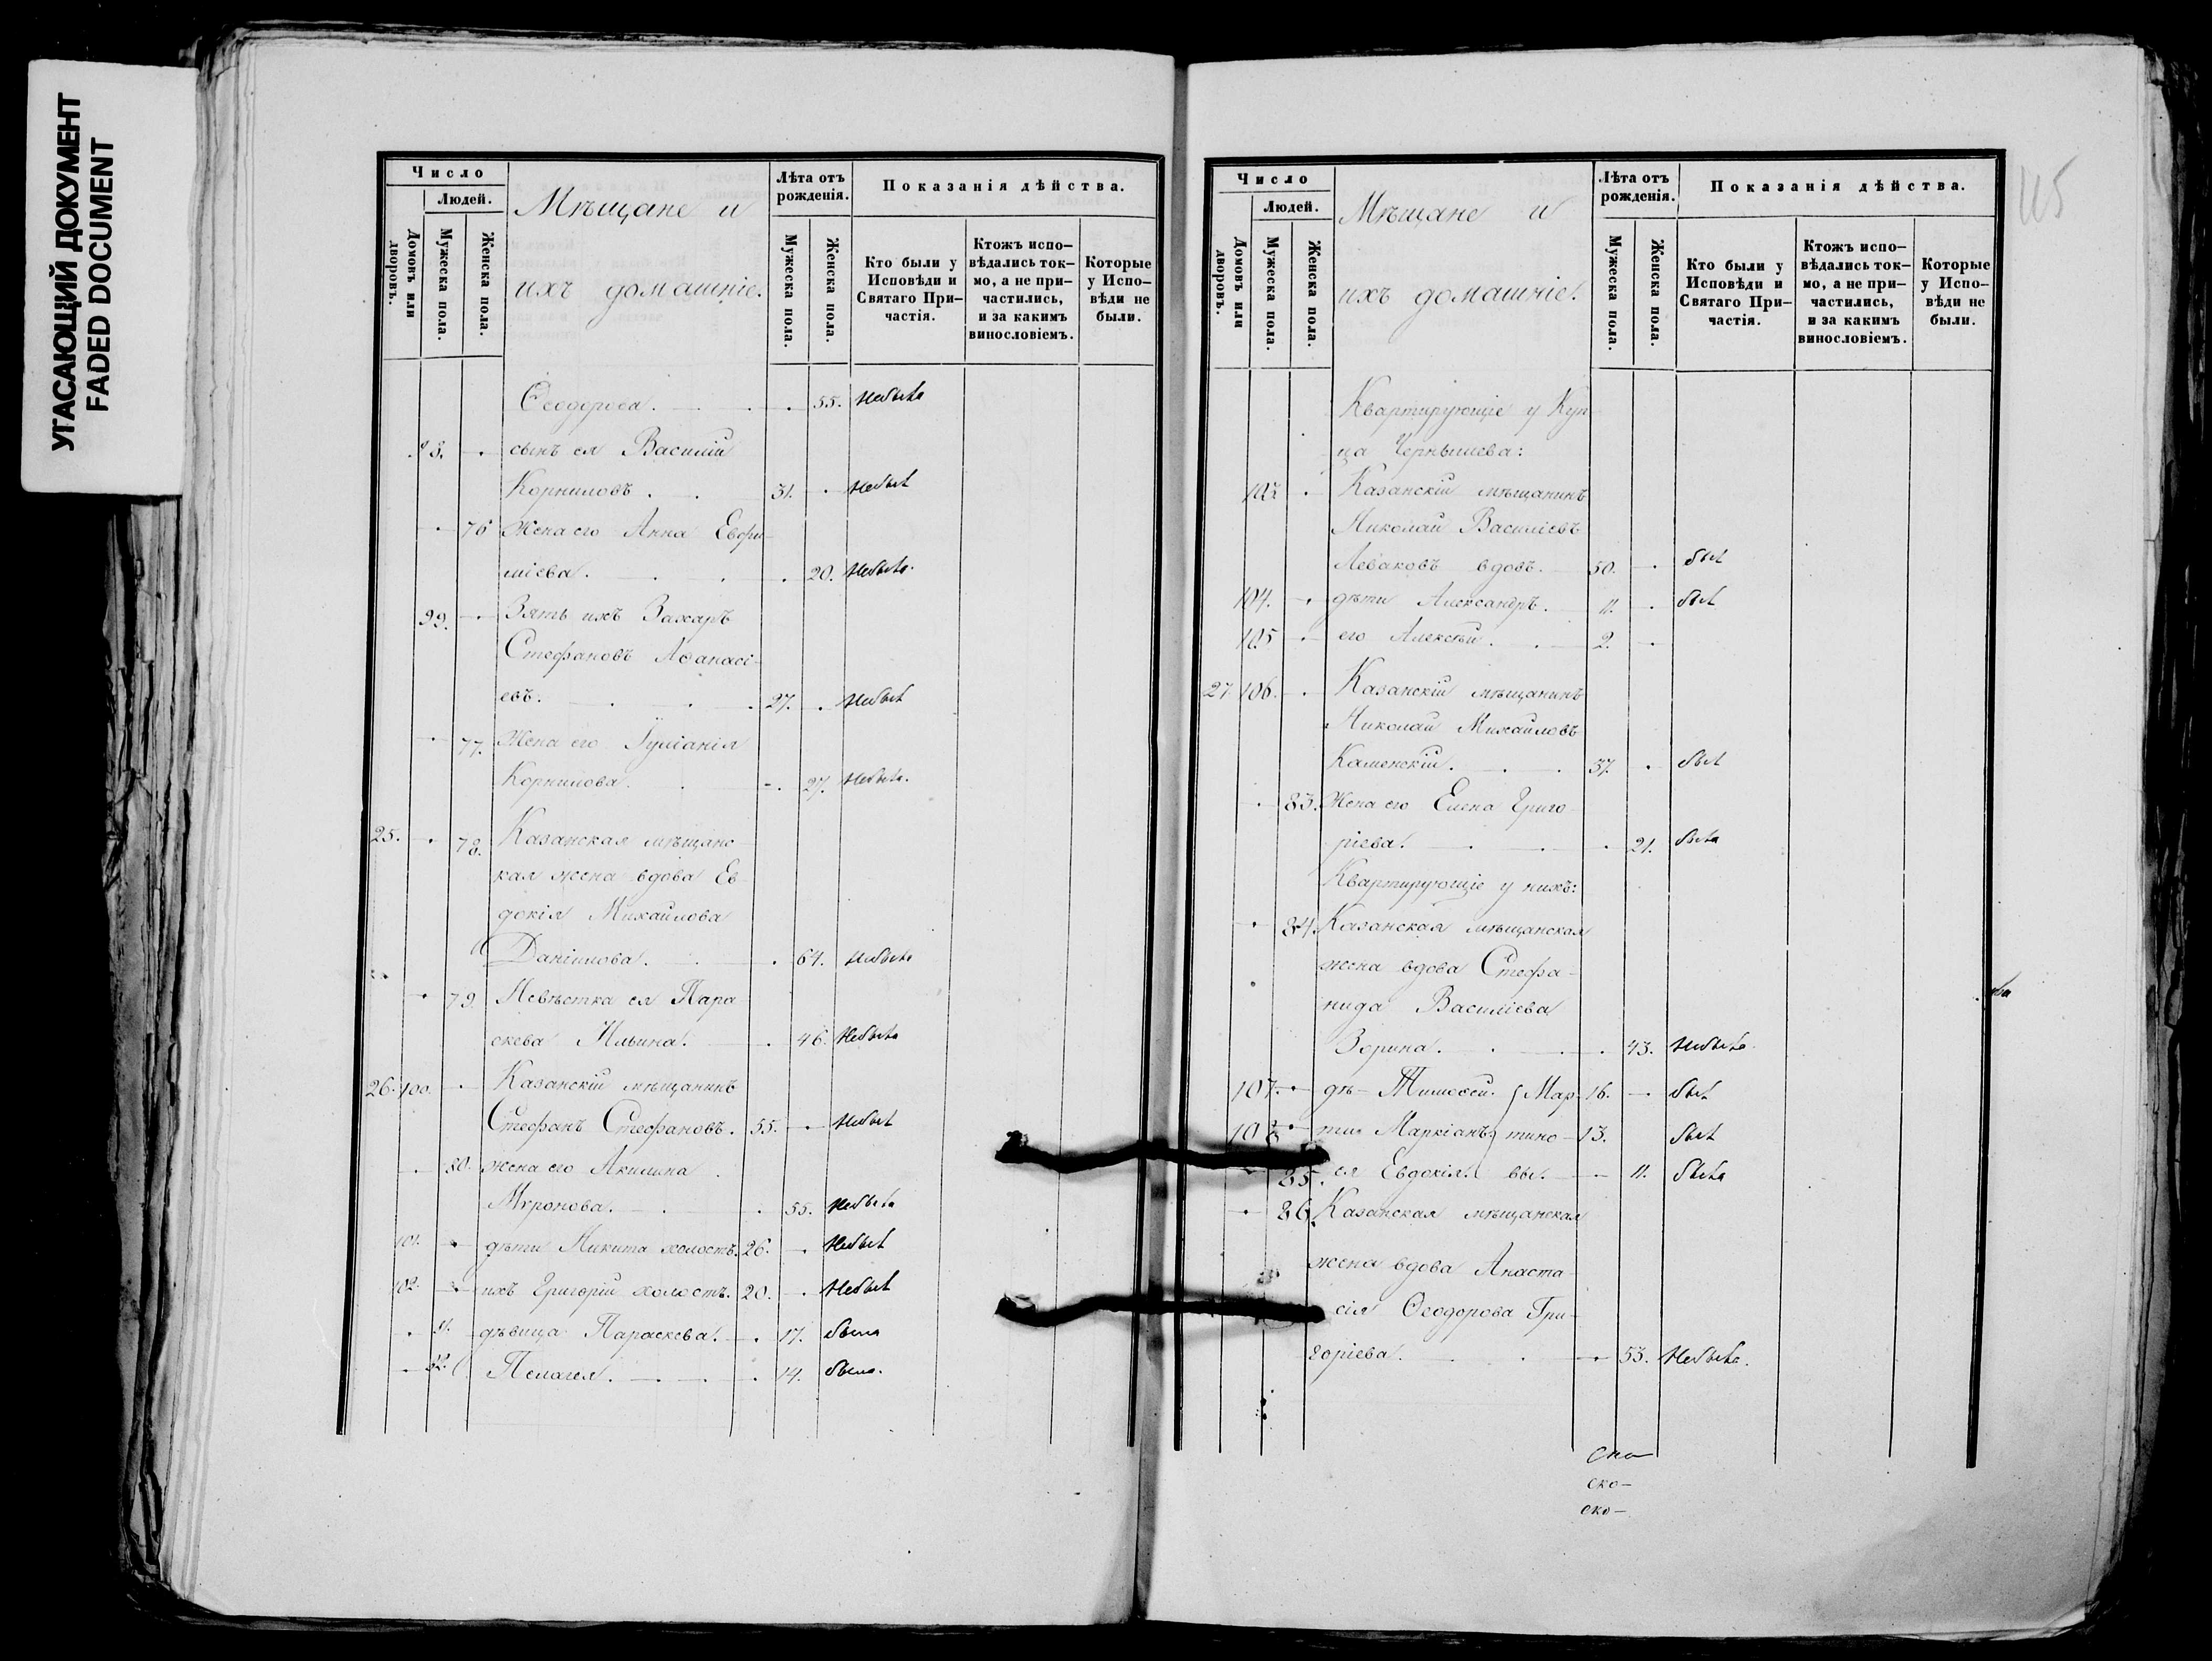 УГАСАЮЩИЙ ДОКУМЕНТ
FADED DOCUMENT
Число
Людей.
Домовъ или дворовъ.
Мужеска пола.
Женска пола.
Мѣщане и
ихъ домашніе.
Лѣта отъ рожденія.
Мужеска пола.
Женска пола.
Показанія дѣйства.
Кто были у Исповѣди и Святаго При-частія.
Ктожъ испо-вѣдались ток-мо, а не при-частились, и за какимъ винословіемъ.
Которые у Испо-вѣди не были.
Ѳеодорова. 55. небыла
98. сынъ ея Василій
Корниловъ. 31. небылъ
76 Жена его Анна Евфи-
міева. 20. небыла.
99. Зять ихъ Захаръ
Стефановъ Аѳанасі-
евъ. 27. небылъ
77. Жена его Іуліанія
Корнилова. 27. небыла.
25. 78. Казанская мѣщанс-
кая жена вдова Ев-
докія Михайлова
Даніилова. 64. небыла
79. Невѣстка ея Пара-
скева Ильина. 46. Небыла
26. 100. Казанскій мѣщанинъ
Стефанъ Стефановъ. 55. Небылъ
80. жена его Акилина
Мѵронова. 55. Небыла
101. дѣти Никита холостъ. 26. Небылъ
102. ихъ Григорій холостъ. 20. Небылъ
дѣвица Параскева. 17. была
82. Пелагея. 14. была.
115
Число
Людей.
Домовъ или дворовъ.
Мужеска пола.
Женска пола.
Мѣщане и
ихъ домашніе.
Лѣта отъ рожденія.
Мужеска пола.
Женска пола.
Показанія дѣйства.
Кто были у Исповѣди и Святаго При-частія.
Ктожъ испо-вѣдались ток-мо, а не при-частились, и за какимъ винословіемъ.
Которые у Испо-вѣди не были.
Квартирующіе у Куп-
ца Чернышева:
103 Казанскій мѣщанинъ
Николай Василіевъ
Леваковъ вдовъ. 50. былъ
104. дѣти Александръ. 11. былъ
105 его Алексѣй. 2.
27 106. Казанскій мѣщанинъ
Николай Михайловъ
Каменскій. 37. былъ
83. Жена его Елена Григо-
ріева. 21. была
Квартирующіе у нихъ:
84. Казанская мѣщанская
жена вдова Стефа-
нида Василіева
Зорина. 43. небыла
107. дѣ- Тимоѳей. Мар- 16. былъ
108 ти Маркіанъ тино- 13. былъ
85. ея Евдокія. вы. 11. была
86. Казанская мѣщанская
жена вдова Анаста-
сія Ѳеодорова Гри-
горіева. 53. Небыла.
ско-
ско-